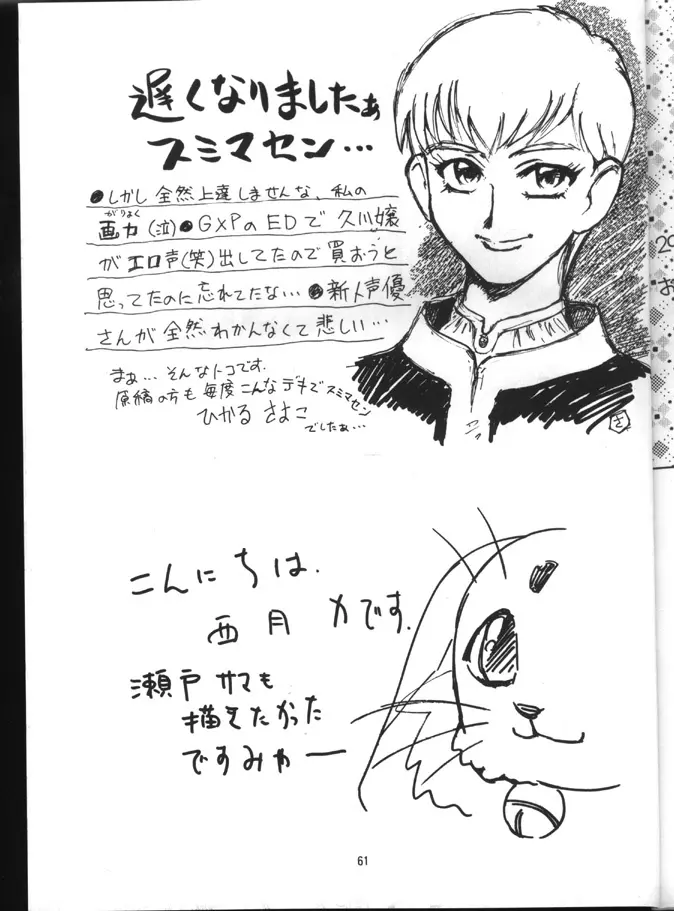 遅くなりましたぁ
スミマセン…
●しかし全然上達しませんな、私の
画力(泣)●GXPのEDで久川嬢
がりょく
がエロ声(笑)出してたので買おうと
思ってたのに忘れてたな…●新人声優
さんが全然わかんなくて悲しい…
まぁ…そんなトコです。
原稿の方も毎度こんなデキでスミマセン
ひかる さよこ
でしたぁ…
さ
こんにちは.
西月 力です.
瀬戸サマも
描きたかった
ですみゃー
61
29
お